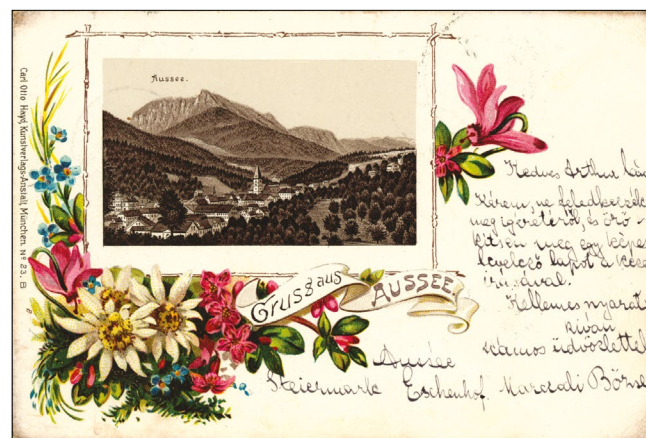 Aussee.
Carl Otto Hayd, Kunstverlags-Anstalt, München. No 23. B
Gruss aus AUSSEE
Kedves Arthur bác
Kérem, ne feledkezzék
meg igéretéről, és örö-
kitsen meg egy képes
levelező lapot a
irásával.
Kellemes nyarat
kiván
számos üdvözlettel
Aussee
Steiermark Eschenhof. Marczali Bözse